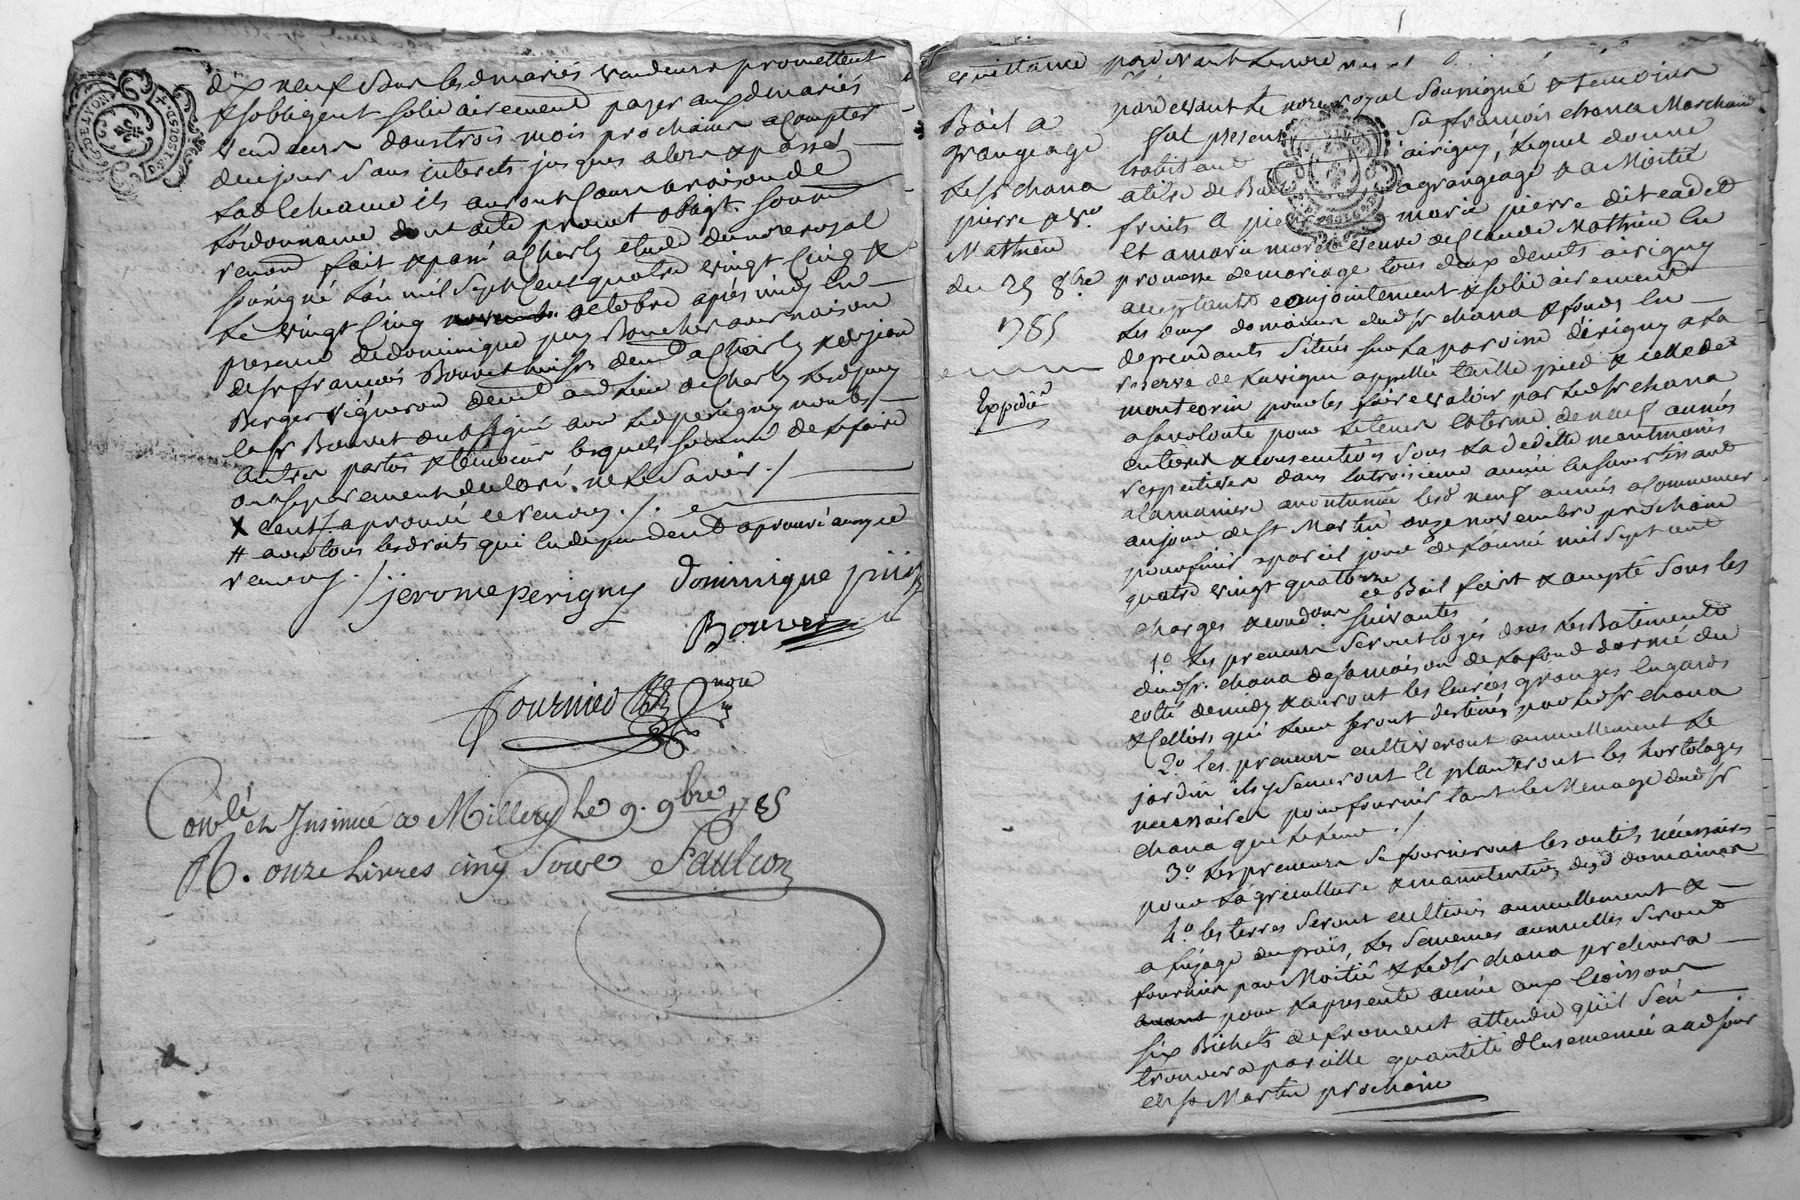 G. DE LYON
dix neuf sous lesd mariés vendeurs promettent
& sobligent solidairement payer auxd mariés
vendeurs dans trois mois prochains a compter
de ce jour sans interets jusques alors & passé
ils auront cours a raison de
L'ordonnance dont acte promt obligt. soum
renond fait & passé a Charly etude du nore royal
soussigné L'an mil sept cent quatre vingt cinq &
Le vingt cinq octobre après midy en
presence de dominique puy Boucher
de sr françois Bouvet demt a Charly &
Berger vigneron demt aud Lieu de Charly Led puy
Led sr Bouvet ont signé avec Led perigny non les
autres parties & temoins lesquels de le faire
ont separement declaré ne le savoir ./
X cent/ aprouvé ce renvoy ./.
# avec tous les droits qui en dependent aprouvé aussy ce
renvoy ./
jerome perigny dominique puy
Bouvet
fournier nore
Conlé et Insinué a Millery le 9. 9bre 1785
R. onze Livres cinq Sous Saulcon
quittance pardevant
Bail a
grangeage
Le Sr chana
pierre & ve
Mathieu
du 25 8bre
1785
Expédié
pardevant Le nore royal soussigné & temoins
fut present Sr françois chana Marchand
habitant a irigny, Lequel donne
a titre de Bail a grangeage & a Moitié
fruits a pierre marie pierre dit cadet
et a marie morel veuve de Claude Mathieu en
promesse de mariage tous deux demts a irigny
acceptants conjointement & solidairement
Les deux domaines dud Sr chana & fonds en
dependants situés sur La paroisse d'irigny a La
reserve de La vigne appellée taille pied & celle de
montcorin pour les faire valoir par Led Sr chana
a sa volonté pour Le tems & terme de neuf années
entieres & consecutives sous La deditte neantmoins
respective dans La troisieme année en savertissant
a La maniere accoutumée lesd neuf années a commencer
au jour de St Martin onze novembre prochain
pour finir a pareil jour de L'année mil sept cent
quatre vingt quatorze ce Bail fait & accepté sous les
charges & condons suivantes
1° Les preneurs seront logés dans Les Batiments
dud Sr. chana de sa maison de La fond dorme du
coté de midy & auront les ecuries granges
& Celliers qui Leur seront destinés par Led Sr chana
2° les preneurs cultiveront annuellement Le
jardin ils y semeront et planteront les hortolages
necessaires pour fournir tant le Menage dud Sr
chana que Le Leur ./
3° Les preneurs se fourniront les outils nécessaires
pour L'agriculture & manutention desd domaines
4° les terres seront cultivées annuellement &
a L'usage du païs, Les semences annuelles seront
fournies par Moitié & Led Sr chana prelevera
pour La presente année aux moissons
six Bichets de froment attendu qu'il s'en
trouvera pareille quantité d'ensemencée aud jour
de St Martin prochain